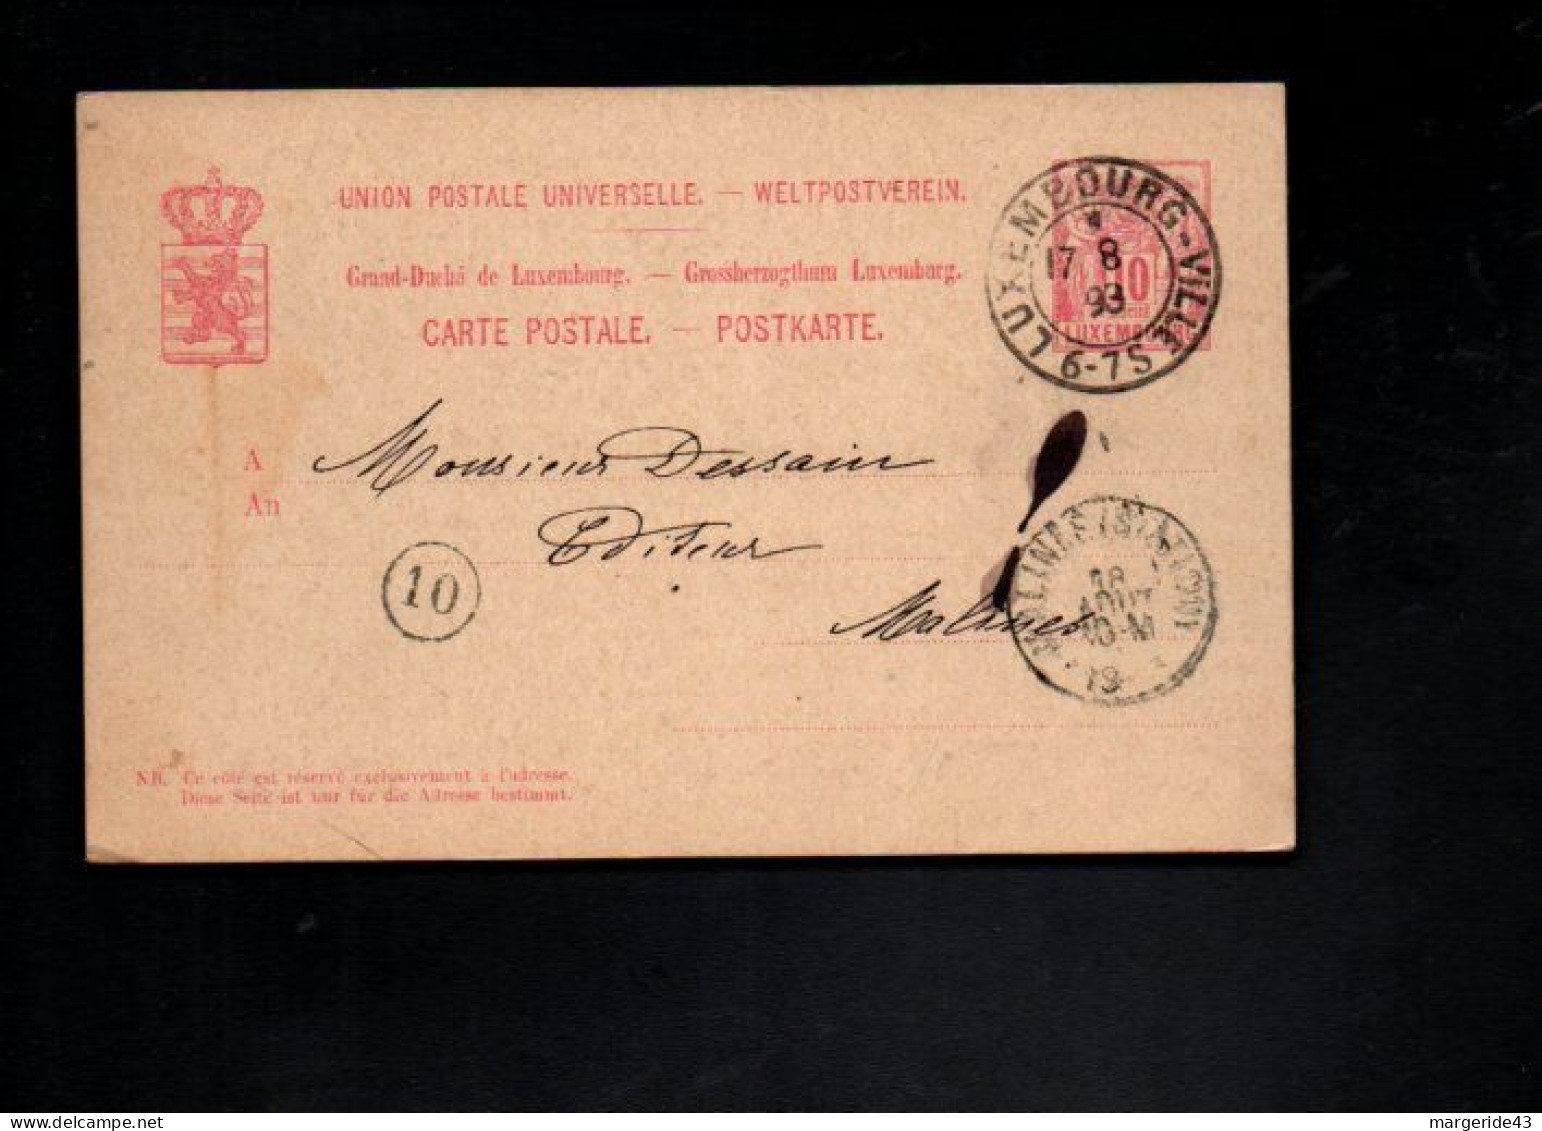 UNION POSTALE UNIVERSELLE. — WELTPOSTVEREIN.
Grand-Duché de Luxembourg. — Grossherzogthum Luxemburg.
CARTE POSTALE. — POSTKARTE.
LUXEMBOURG-VILLE
17 8
93
6-7S
10
LUXEMB
A Monsieur Dessain
An
Editeur
10
Malines
MALINES (STATION)
18
AOUT
10-M
NB. Ce côté est réservé exclusivement à l'adresse.
Diese Seite ist nur für die Adresse bestimmt.
margeride43